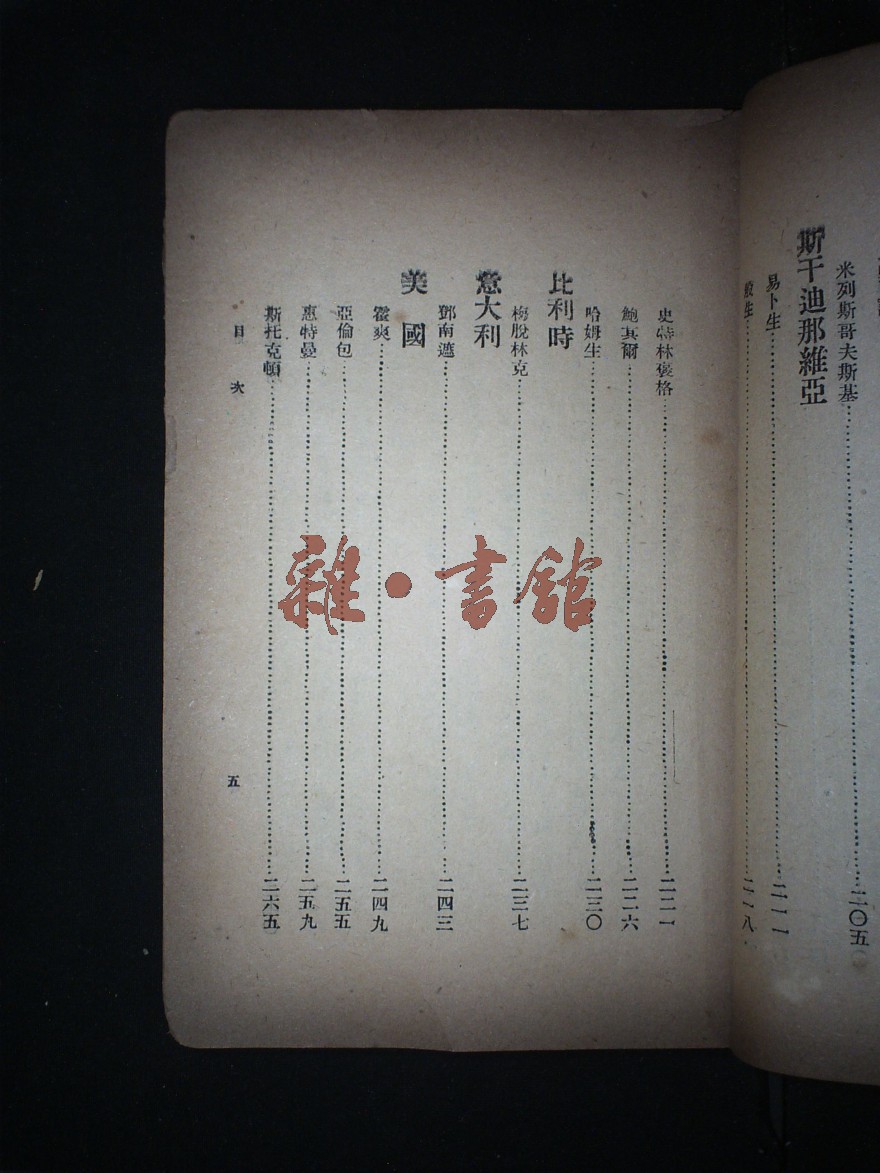 米列斯哥夫斯基……二〇五
斯干迪那維亞
易卜生……二一一
般生……二一八
史特林褒格……二二一
鮑其爾……二二六
哈姆生……二三〇
比利時
梅脫林克……二三七
意大利
鄧南遮……二四三
美國
霍爽……二四九
亞倫包……二五五
惠特曼……二五九
斯托克頓……二六五
目次
五
雜·書館